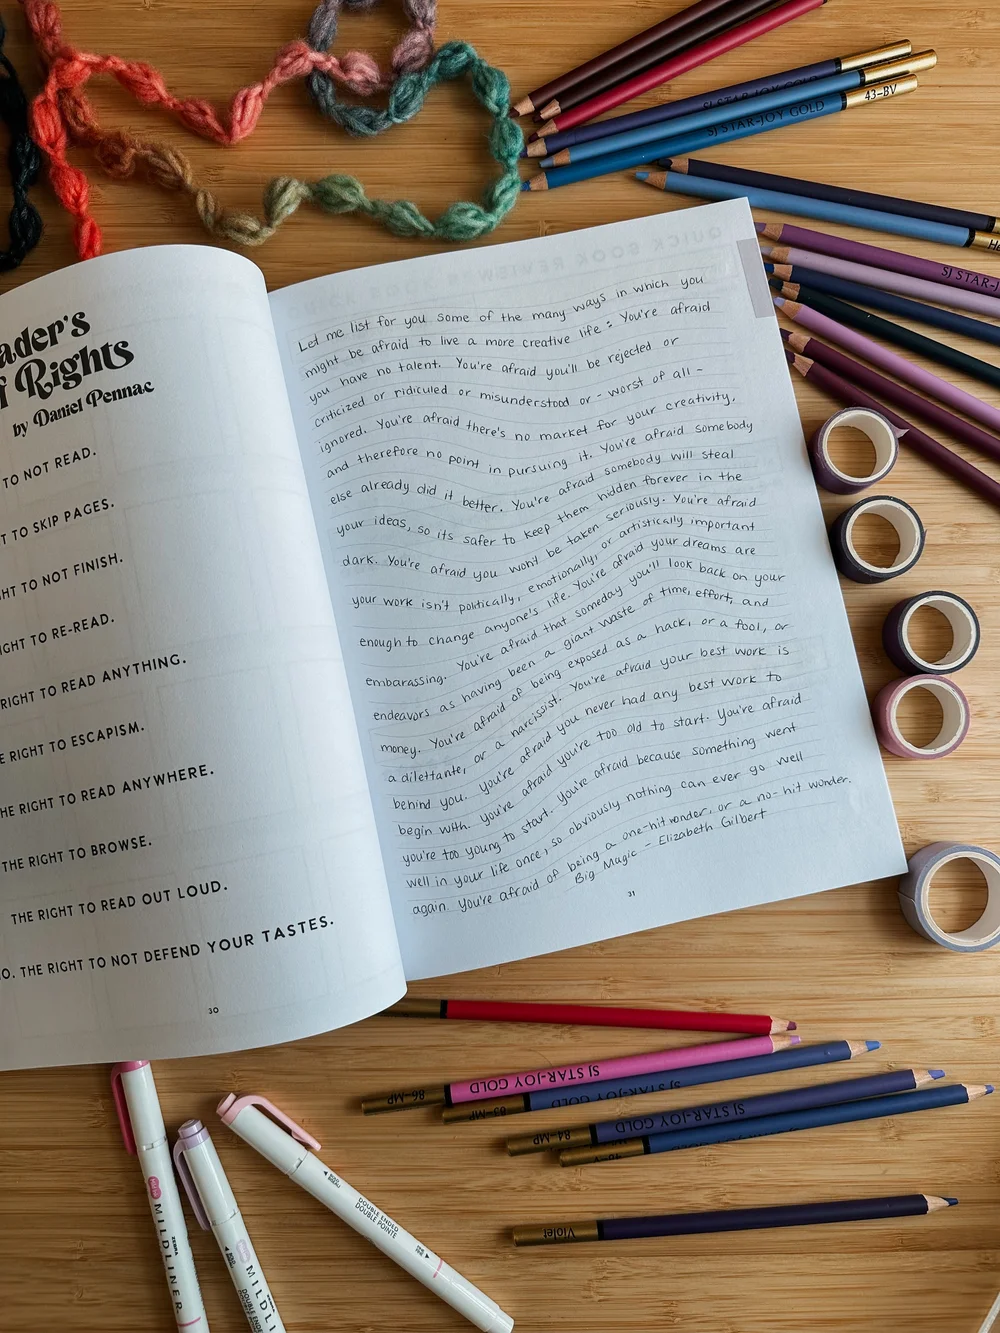 ader's
f Rights
by Daniel Pennac
TO NOT READ.
T TO SKIP PAGES.
HT TO NOT FINISH.
IGHT TO RE-READ.
RIGHT TO READ ANYTHING.
E RIGHT TO ESCAPISM.
HE RIGHT TO READ ANYWHERE.
THE RIGHT TO BROWSE.
THE RIGHT TO READ OUT LOUD.
O. THE RIGHT TO NOT DEFEND YOUR TASTES.
30
Let me list for you some of the many ways in which you
might be afraid to live a more creative life: You're afraid
you have no talent. You're afraid you'll be rejected or
criticized or ridiculed or misunderstood or - worst of all -
ignored. You're afraid there's no market for your creativity,
and therefore no point in pursuing it. You're afraid somebody
else already did it better. You're afraid somebody will steal
your ideas, so its safer to keep them hidden forever in the
dark. You're afraid you won't be taken seriously. You're afraid
your work isn't politically, emotionally, or artistically important
enough to change anyone's life. You're afraid your dreams are
embarassing. You're afraid that someday you'll look back on your
endeavors as having been a giant waste of time, effort, and
money. You're afraid of being exposed as a hack, or a fool, or
a dilettante, or a narcissist. You're afraid your best work is
behind you. You're afraid you never had any best work to
begin with. You're afraid you're too old to start. You're afraid
you're too young to start. You're afraid because something went
well in your life once, so obviously nothing can ever go well
again. You're afraid of being a one-hit wonder, or a no-hit wonder.
Big Magic - Elizabeth Gilbert
31
QUICK BOOK REVIEW
SJ STAR-JOY GOLD
SJ STAR-JOY GOLD
43-BV
SJ STAR-J
86-MP
SJ STAR-JOY GOLD
83-MP
SJ STAR-JOY GOLD
84-MP
SJ STAR-JOY GOLD
SJ STAR-JOY GOLD
Violet
ZEBRA
MILDLINER
MILDLI
DOUBLE ENDED
DOUBLE POINTE